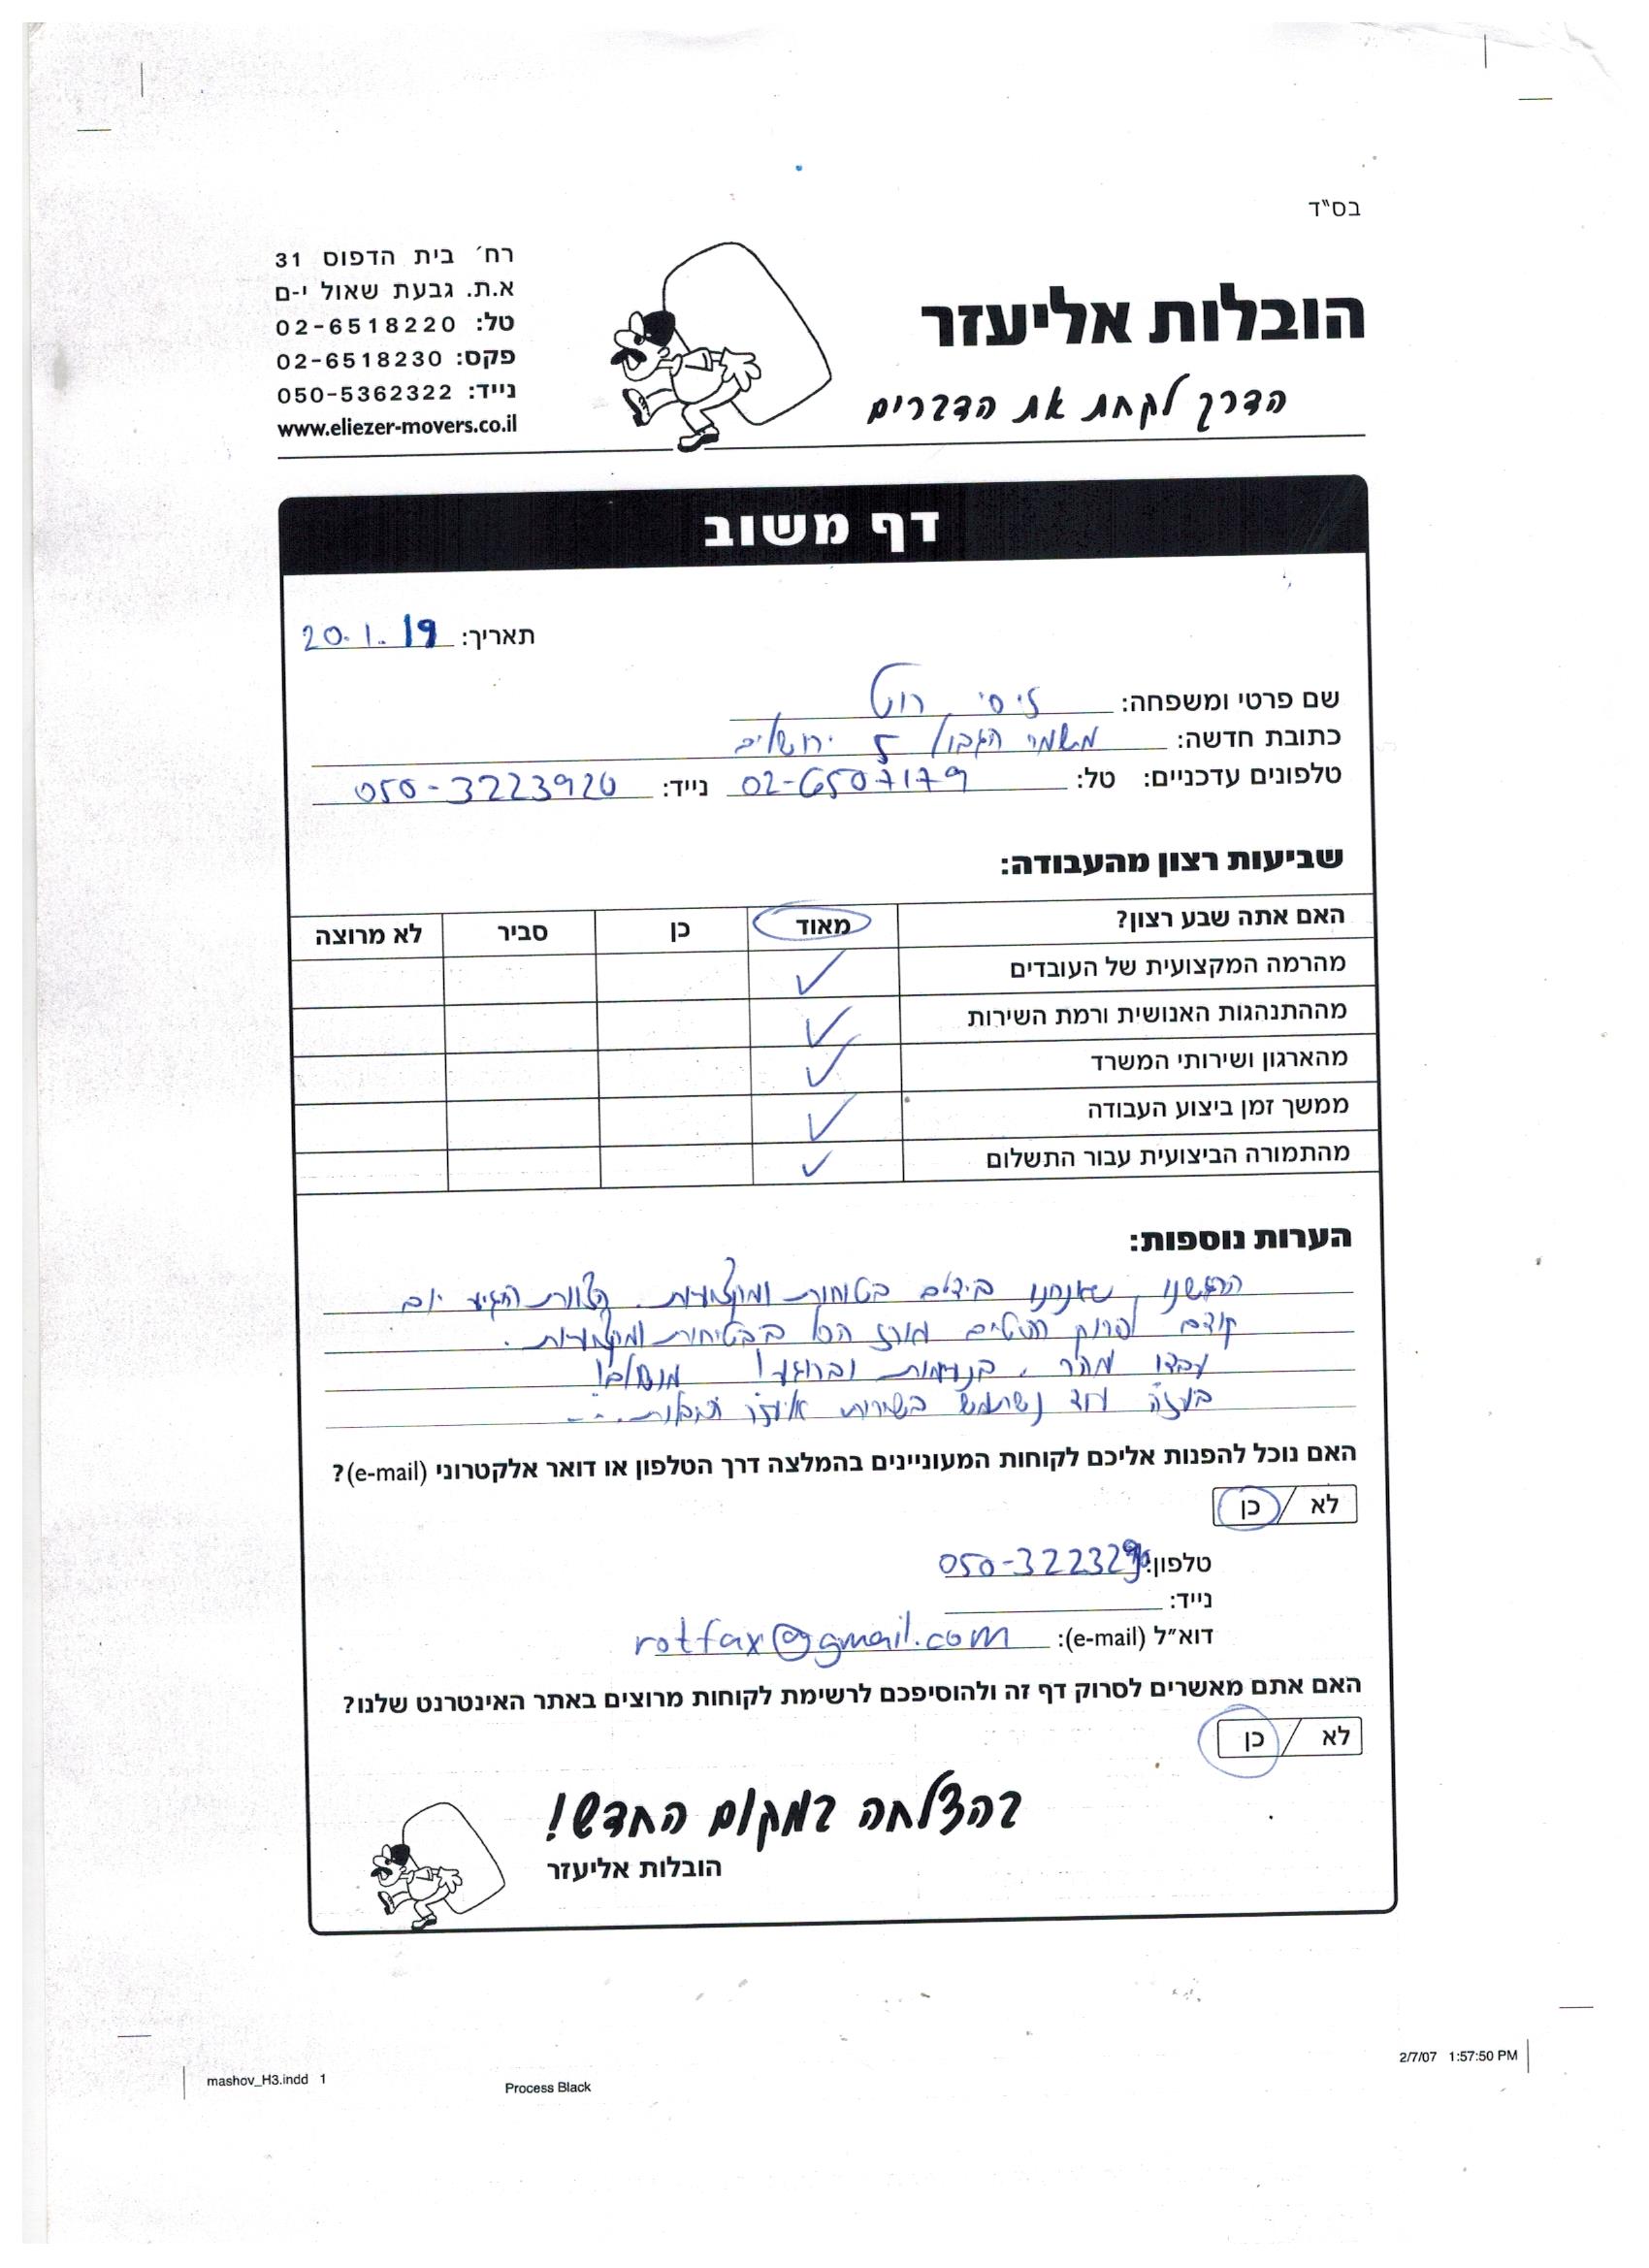 בס"ד
הובלות אליעזר
הדרך לקחת את הדברים
רח' בית הדפוס 31
א.ת. גבעת שאול י-ם
טל: 02-6518220
פקס: 02-6518230
נייד: 050-5362322
www.eliezer-movers.co.il
דף משוב
תאריך: 20.1.19
שם פרטי ומשפחה: רוט
כתובת חדשה: משמר הגבול 5 ירושלים
טלפונים עדכניים: טל: 02-6507179 נייד: 050-3223920
שביעות רצון מהעבודה:
האם אתה שבע רצון? מאוד כן סביר לא מרוצה
מהרמה המקצועית של העובדים ✓
מההתנהגות האנושית ורמת השירות ✓
מהארגון ושירותי המשרד ✓
ממשך זמן ביצוע העבודה ✓
מהתמורה הביצועית עבור התשלום ✓
הערות נוספות:
הרגשנו שאנחנו בידים בטוחות ומקצועיות. הצוות הגיע יום
קודם לפרוק רהיטים וארז הכל בבטיחות ומקצועיות.
עבדו מהר, בנעימות וברוגע! מושלם!
בעזה עוד נשתמש בשירות אליעזר הובלות...
האם נוכל להפנות אליכם לקוחות המעוניינים בהמלצה דרך הטלפון או דואר אלקטרוני (e-mail)?
לא / כן
טלפון:
נייד:
דוא"ל (e-mail): rotfax@gmail.com
האם אתם מאשרים לסרוק דף זה ולהוסיפכם לרשימת לקוחות מרוצים באתר האינטרנט שלנו?
לא / כן
בהצלחה במקום החדש!
הובלות אליעזר
mashov_H3.indd 1
Process Black
2/7/07 1:57:50 PM